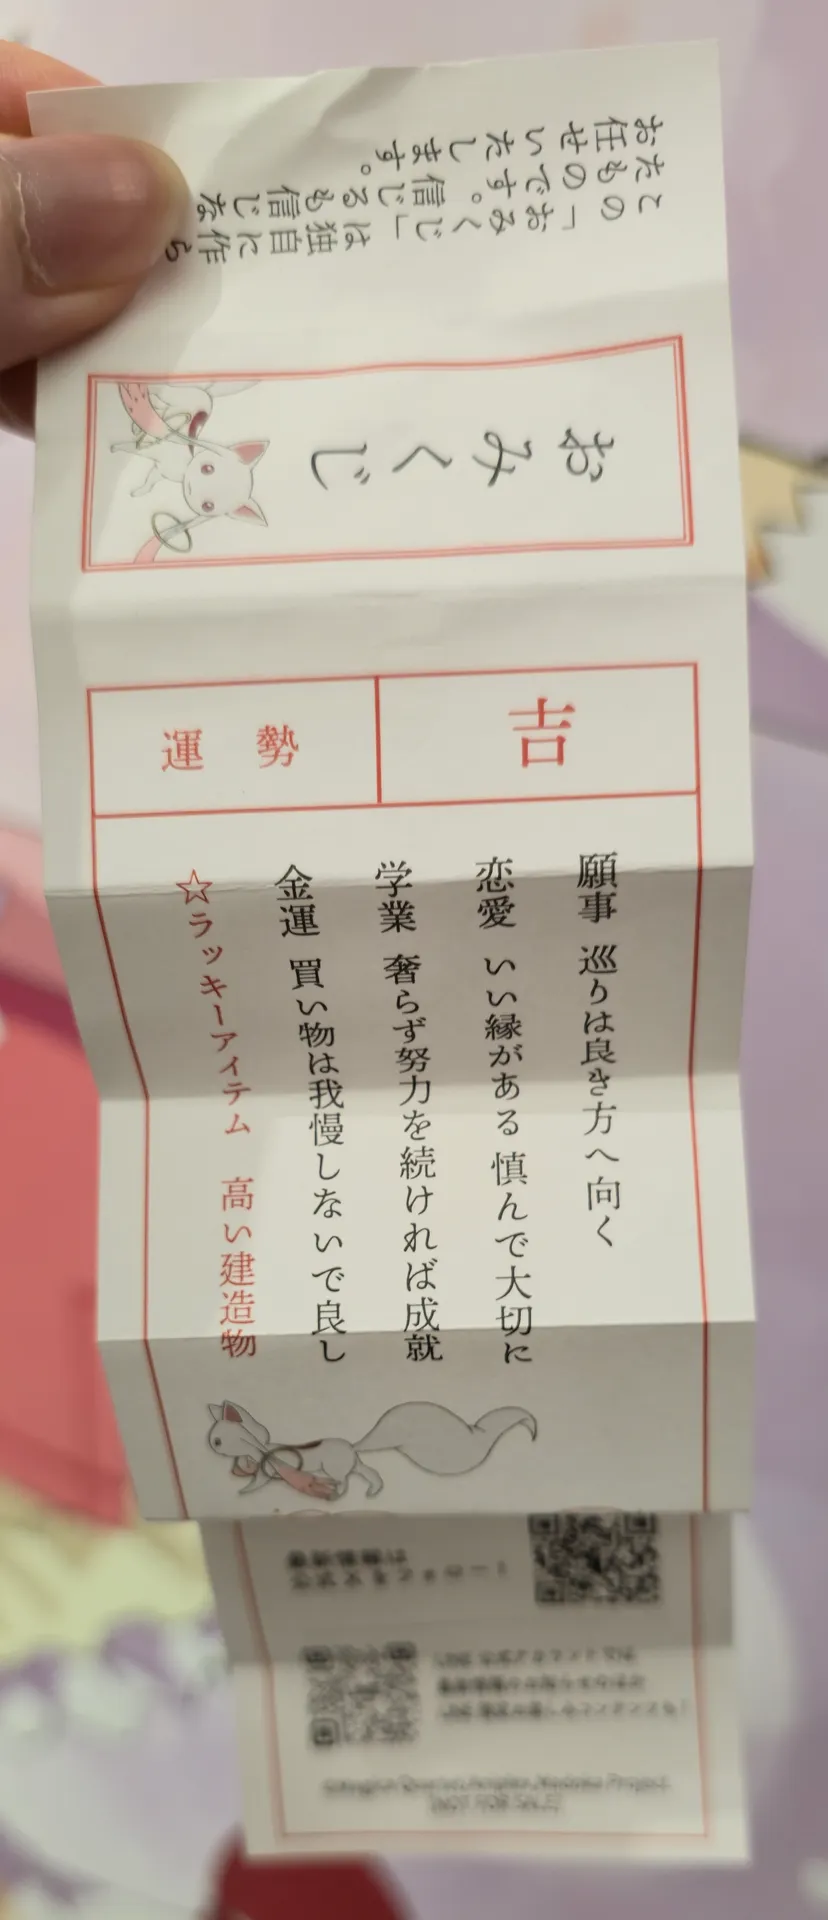 この「おみくじ」は独自に作ら
たものです。信じるも信じな
お任せいたします。
おみくじ
運勢
吉
願事 巡りは良き方へ向く
恋愛 いい縁がある 慎んで大切に
学業 奢らず努力を続ければ成就
金運 買い物は我慢しないで良し
☆ラッキーアイテム 高い建造物
©Magica Quartet/Aniplex,Madoka Project
NOT FOR SALE